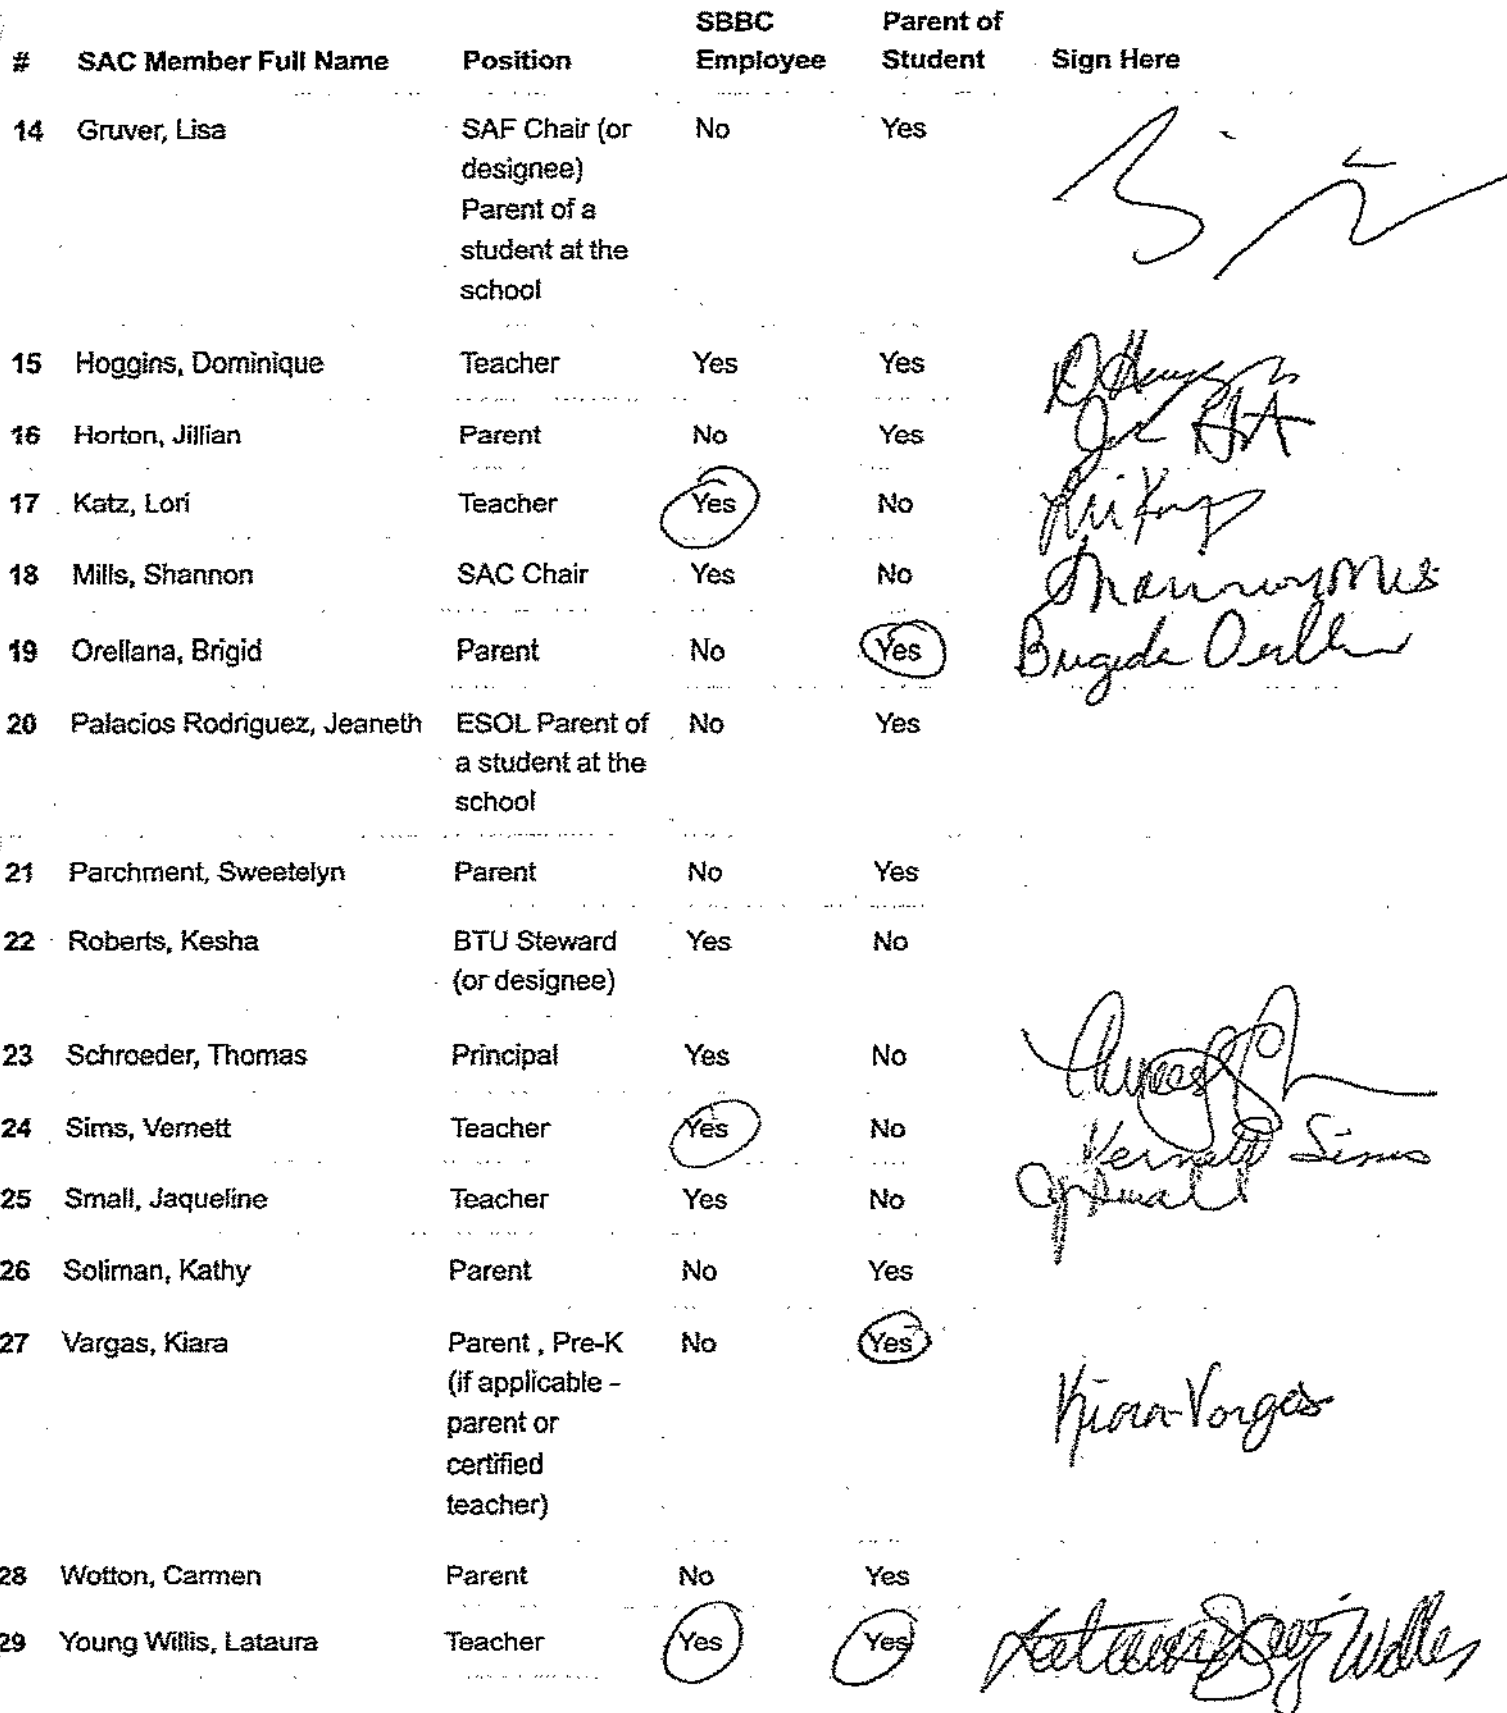 SBBC Parent of
# SAC Member Full Name Position Employee Student Sign Here
14 Gruver, Lisa SAF Chair (or No Yes
designee)
Parent of a
student at the
school
15 Hoggins, Dominique Teacher Yes Yes
16 Horton, Jillian Parent No Yes
17 Katz, Lori Teacher Yes No
18 Mills, Shannon SAC Chair Yes No
19 Orellana, Brigid Parent No Yes
20 Palacios Rodriguez, Jeaneth ESOL Parent of No Yes
a student at the
school
21 Parchment, Sweetelyn Parent No Yes
22 Roberts, Kesha BTU Steward Yes No
(or designee)
23 Schroeder, Thomas Principal Yes No
24 Sims, Vernett Teacher Yes No Vernett Sims
25 Small, Jaqueline Teacher Yes No
26 Soliman, Kathy Parent No Yes
27 Vargas, Kiara Parent , Pre-K No Yes
(if applicable – Kiara Vargas
parent or
certified
teacher)
28 Wotton, Carmen Parent No Yes
29 Young Willis, Lataura Teacher Yes Yes